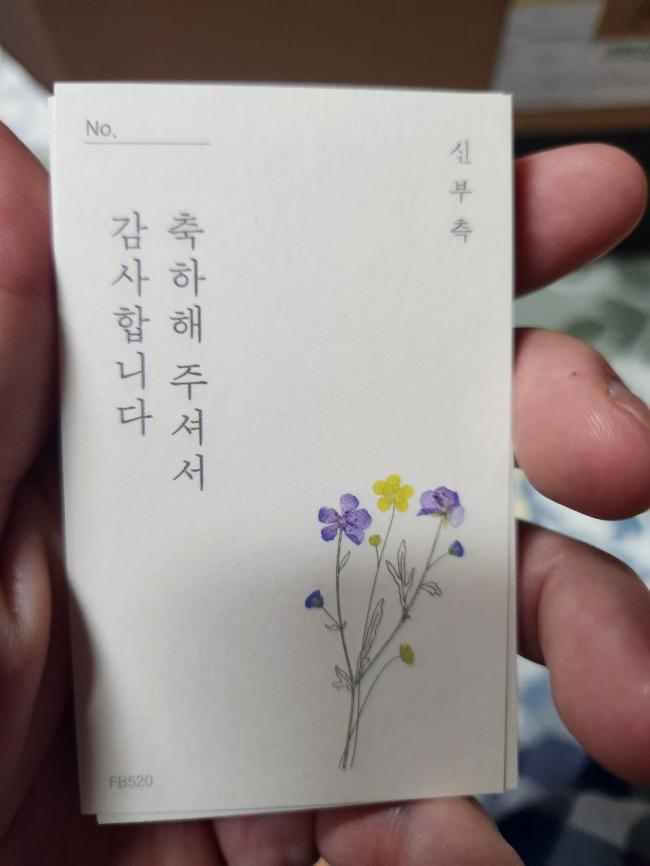 No.
신부측
축하해 주셔서
감사합니다
FB520